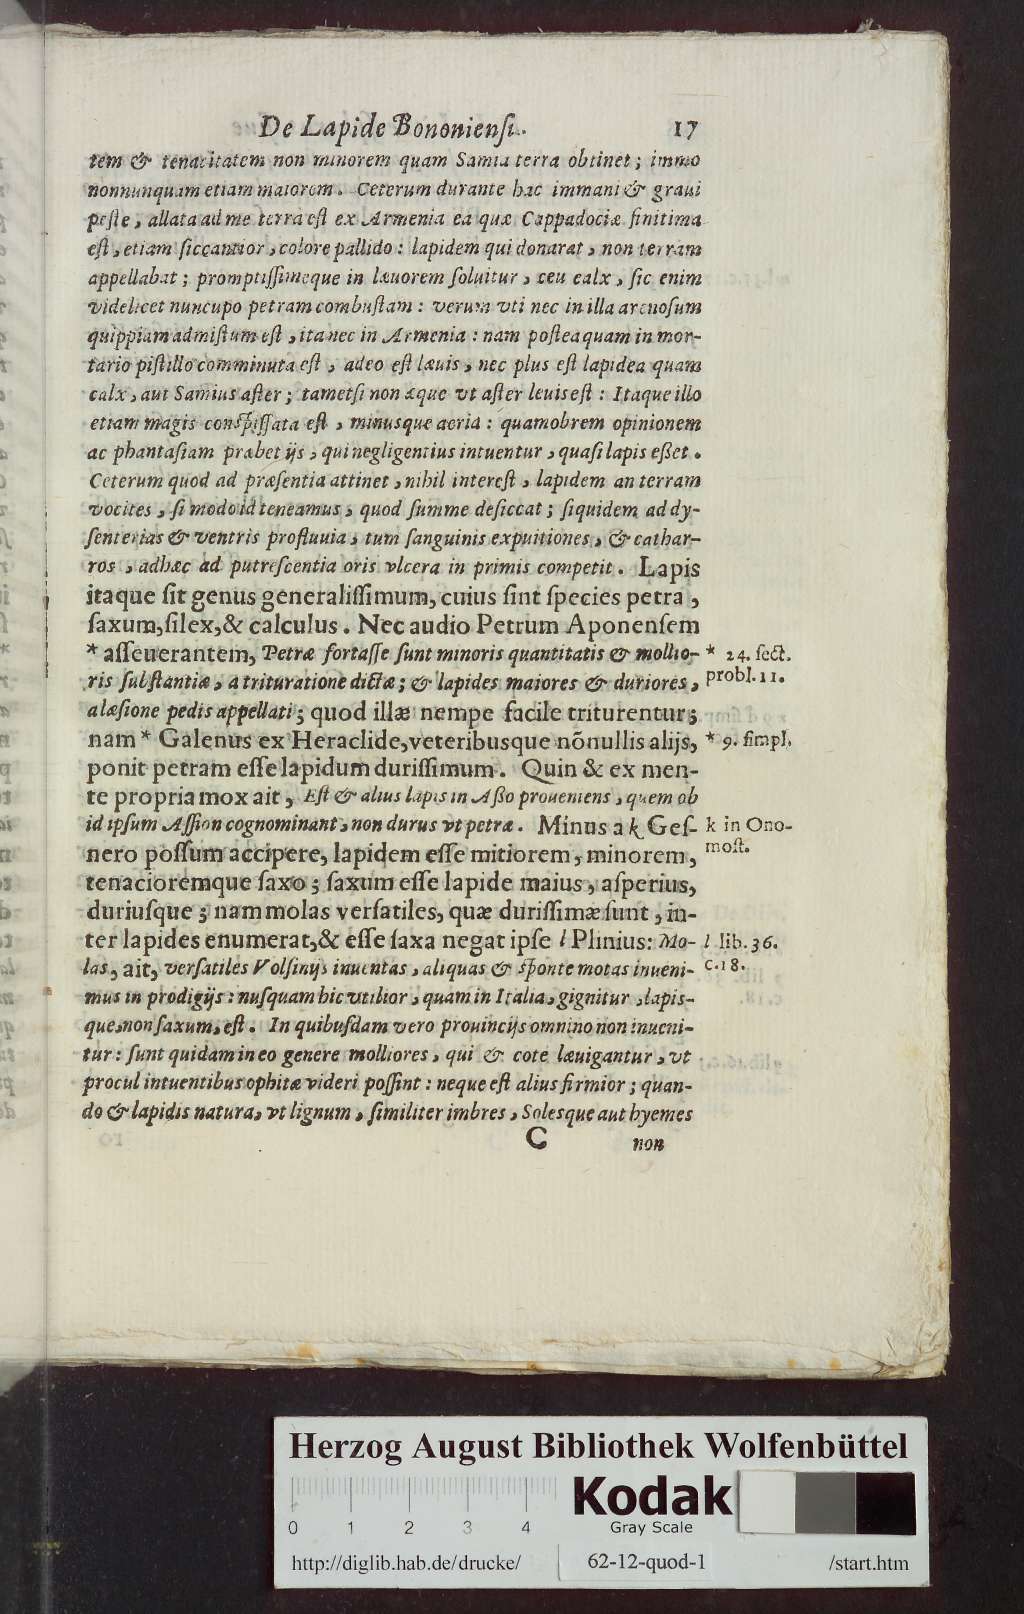 De Lapide Bononiensi.
17
tem & tenacitatem non minorem quam Samia terra obtinet; immo
nonnunquam etiam maiorem. Ceterum durante hac immani & graui
peste, allata ad me terra est ex Armenia ea quæ Cappadociæ finitima
est, etiam siccantior, colore pallido: lapidem qui donarat, non terram
appellabat; promptissimeque in læuorem soluitur, ceu calx, sic enim
videlicet nuncupo petram combustam: verum vti nec in illa arenosum
quippiam admistum est, ita nec in Armenia: nam posteaquam in mor-
tario pistillo comminuta est, adeo est læuis, nec plus est lapidea quam
calx, aut Samius aster; tametsi non æque vt aster leuis est: Itaque illo
etiam magis conspissata est, minusque aeria: quamobrem opinionem
ac phantasiam præbet ijs, qui negligentius intuentur, quasi lapis eßet.
Ceterum quod ad præsentia attinet, nihil interest, lapidem an terram
vocites, si modo id teneamus, quod summe desiccat; siquidem ad dy-
senterias & ventris profluuia, tum sanguinis expuitiones, & cathar-
ros, adhæc ad putrescentia oris vlcera in primis competit. Lapis
itaque sit genus generalissimum, cuius sint species petra,
saxum, silex, & calculus. Nec audio Petrum Aponensem
* asseuerantem, Petræ fortasse sunt minoris quantitatis & mollio-
* 24. sect.
ris substantiæ, a trituratione dictæ; & lapides maiores & duriores,
probl. 11.
a læsione pedis appellati; quod illæ nempe facile triturentur;
nam * Galenus ex Heraclide, veteribusque nõnullis alijs,
* 9. simpl.
ponit petram esse lapidum durissimum. Quin & ex men-
te propria mox ait, Est & alius lapis in Aßo proueniens, quem ob
id ipsum Assion cognominant, non durus vt petræ. Minus a k Ges-
k in Ono-
nero possum accipere, lapidem esse mitiorem, minorem,
most.
tenacioremque saxo; saxum esse lapide maius, asperius,
duriusque; nam molas versatiles, quæ durissimæ sunt, in-
ter lapides enumerat, & esse saxa negat ipse l Plinius: Mo-
l lib. 36.
las, ait, versatiles Volsinijs inuentas, aliquas & sponte motas inueni-
c. 18.
mus in prodigijs: nusquam hic vtilior, quam in Italia, gignitur, lapis-
que, non saxum, est. In quibusdam vero prouincijs omnino non inueni-
tur: sunt quidam in eo genere molliores, qui & cote læuigantur, vt
procul intuentibus ophitæ videri possint: neque est alius firmior; quan-
do & lapidis natura, vt lignum, similiter imbres, Solesque aut hyemes
C
non
Herzog August Bibliothek Wolfenbüttel
Kodak
Gray Scale
0 1 2 3 4
http://diglib.hab.de/drucke/ 62-12-quod-1 /start.htm